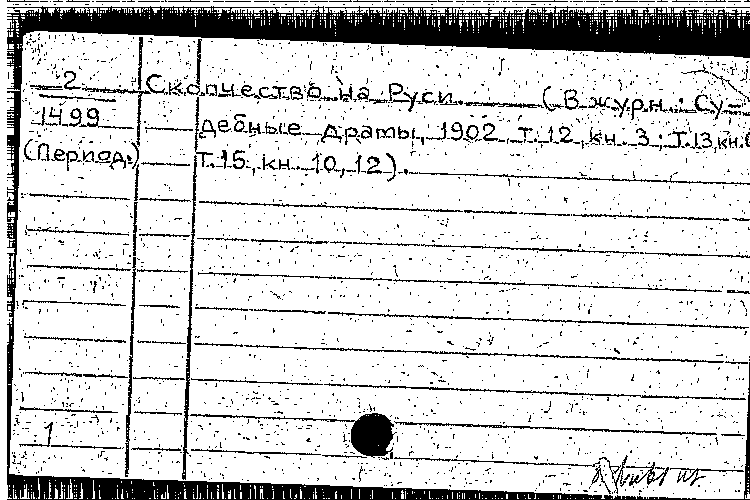 2 Скопчество на Руси (В журн.: Су-
1499 дебные драмы, 1902 т.12, кн. 3; т.13, кн.
(Период.) т.15, кн. 10, 12).
1